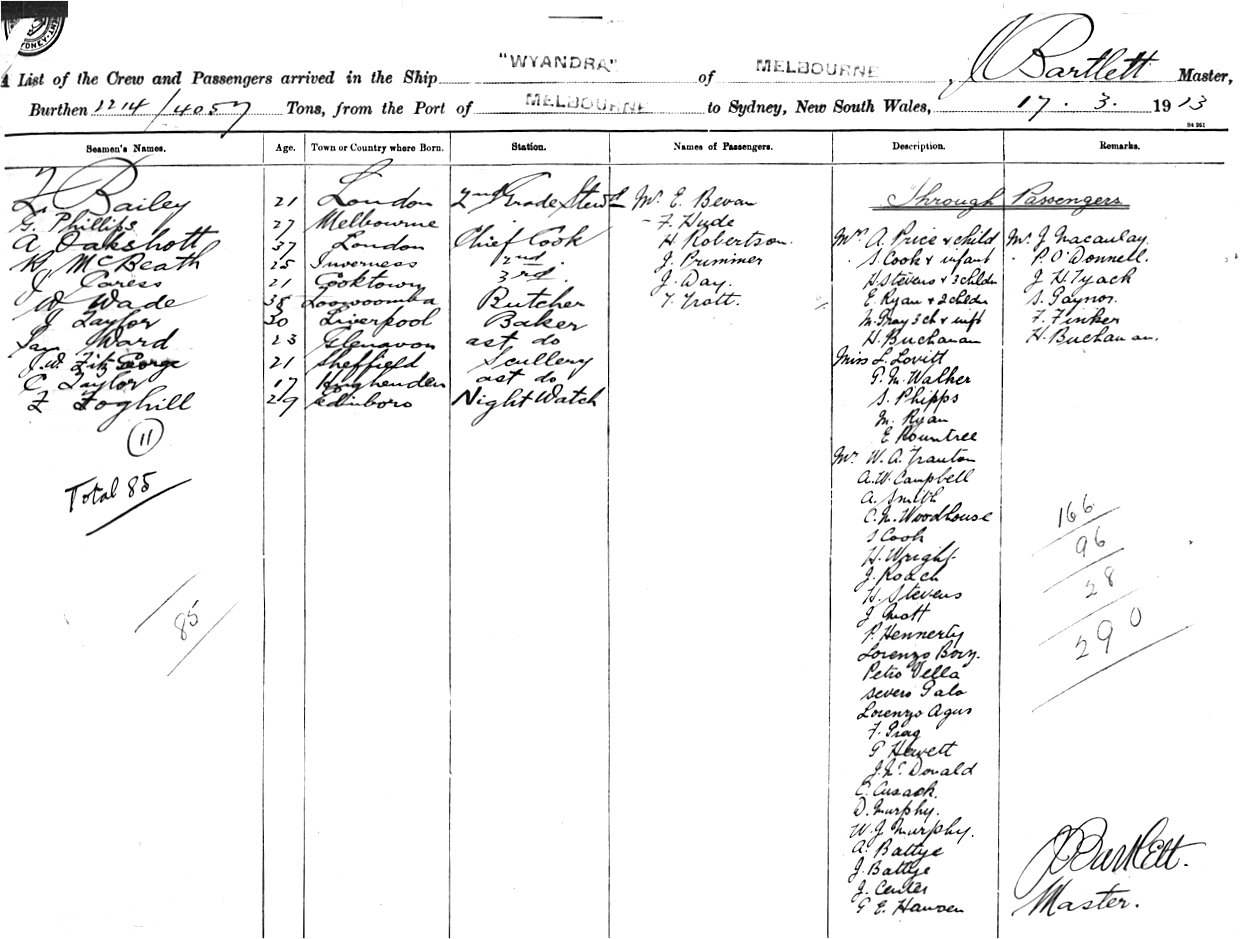 "WYANDRA"
MELBOURNE
A List of the Crew and Passengers arrived in the Ship "WYANDRA" of MELBOURNE J Bartlett Master,
Burthen 1214/4057 Tons, from the Port of MELBOURNE to Sydney, New South Wales, 17. 3. 1913
Seamen's Names. Age. Town or Country where Born. Station. Names of Passengers. Description. Remarks.
Bailey 21 London 2nd Grade Stewd Mr E. Bevan Through Passengers
G. Phillips 27 Melbourne F. Hude
A Oakshott 37 London Chief Cook H Robertson. Mrs A. Price & child Mr J Macaulay.
R McBeath 25 Inverness 2nd. J. Primmer S. Cook & infant P. O'Donnell.
J Caress 21 Cooktown 3rd. J. Day. H. Stevens & 3 childn J H Tyack
W Wade 38 Toowoomba Butcher T. Trott. E. Ryan & 2 childn S. Gaynor.
J Taylor 30 Liverpool Baker M. Gray 3 ch & inft F. Finker
Ward 23 Glenavon ast do H. Buchanan H. Buchanan.
J. W. Fitz George 21 Sheffield Scullery Miss L. Lovitt
C Taylor 17 Hughenden ast do G. M. Walker
F Foghill 29 Edinboro Night Watch S. Phipps
M. Ryan
11 E Rountree
Mr W. A. Tranton
Total 85 A. W. Campbell
A. Smith
C. N. Woodhouse 166
S Cook 96
H. Wright
J. Roach 28
H. Stevens
85 J Mott 290
P. Hennerty
Lorenzo Bory.
Petro Vella
Severo Galo
Lorenzo Agus
F. Prag
G Hewett
J. Mc Donald
C. Cusack.
D. Murphy.
W. J. Murphy.
A. Battye J Bartlett.
J. Battye
J. Center Master.
G E. Hansen